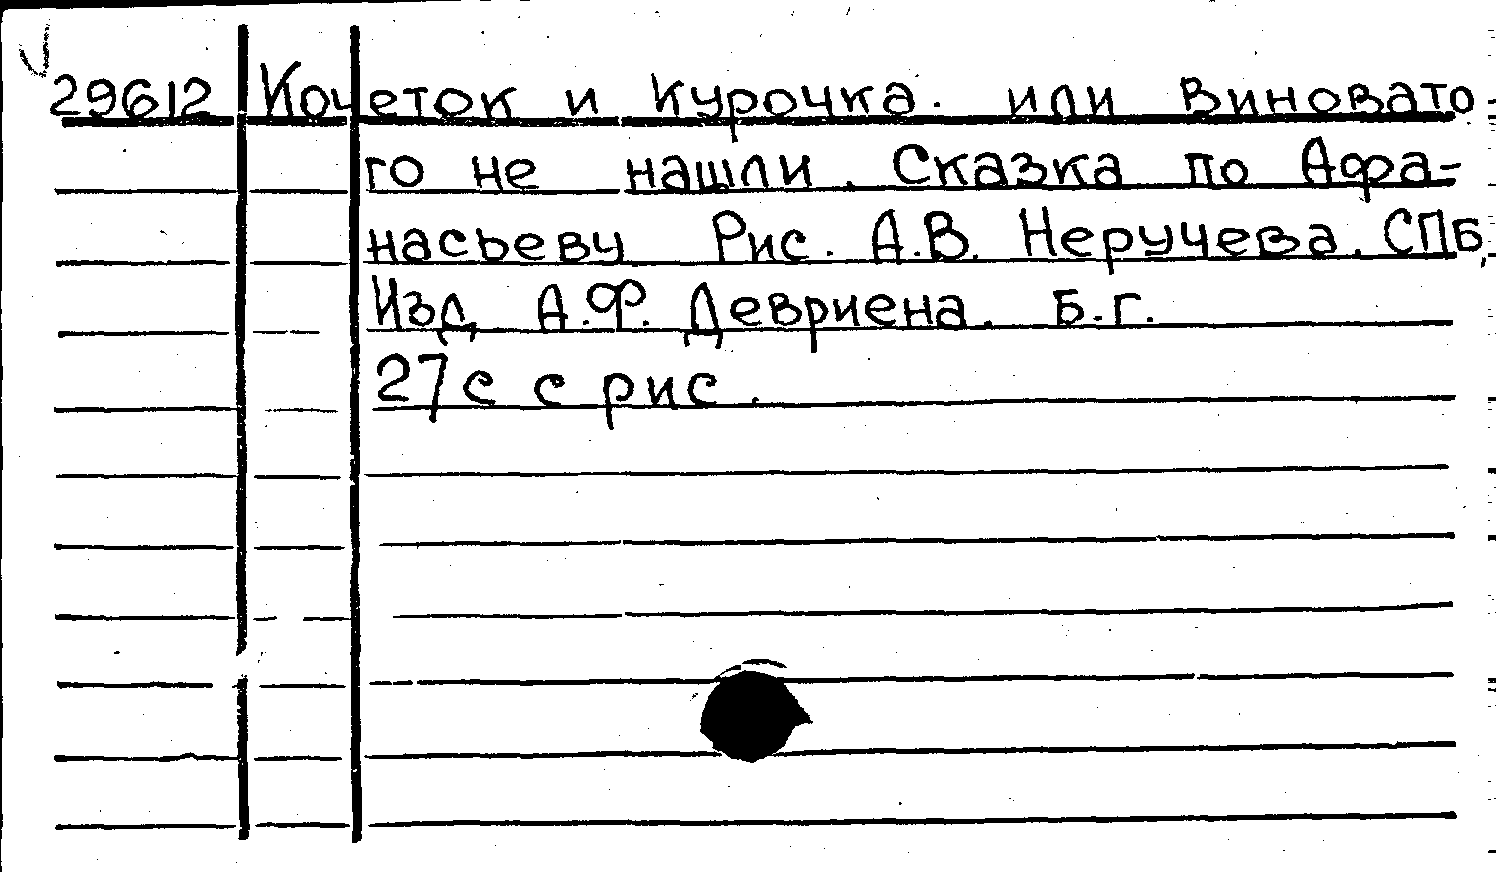 29612 Кочеток и Курочка. или Виновато
го не нашли. Сказка по Афа-
насьеву Рис. А.В. Неручева. СПБ,
Изд А.Ф. Девриена. Б.г.
27с с рис.